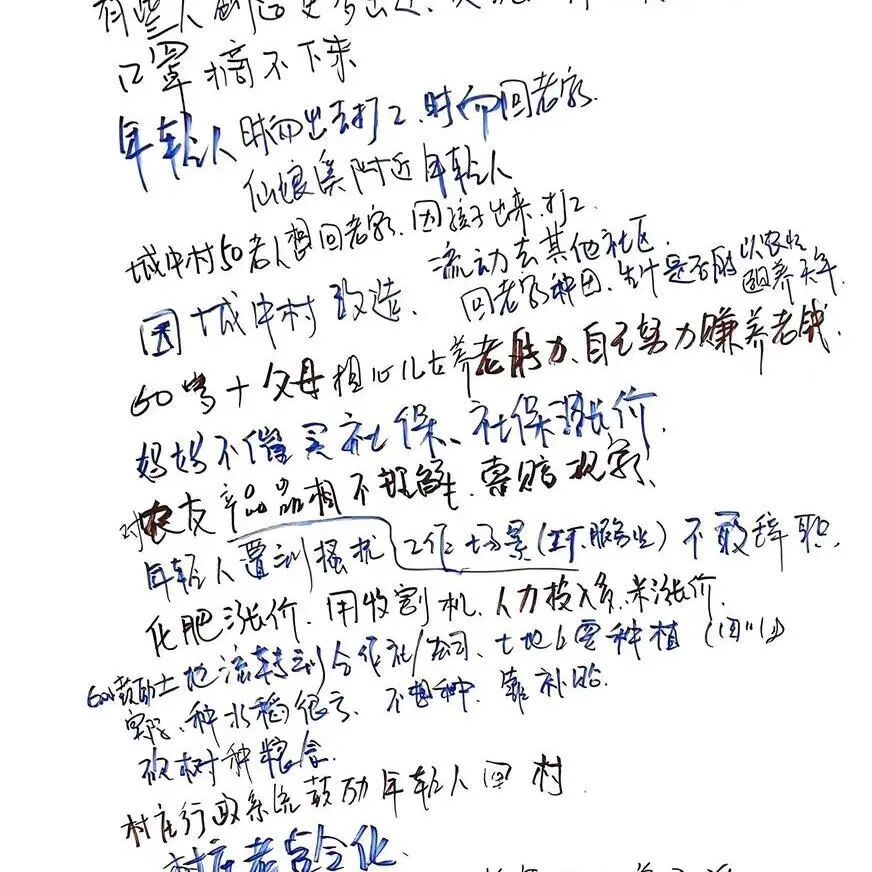 有些人
口罩摘不下来
年轻人时而出去打工.时而回老家.
仙娘溪附近年轻人
城中村50老人想回老家.因孩子出来.打工.
流动去其他社区.
因城中村改造.
回老家种田.生计是否能以农业
养天年
60岁+父母担心儿女养老能力、自己努力赚养老钱.
妈妈不懂买社保、社保涨价.
对农友产品品相不理解.
年轻人遭到骚扰{工作场景(工厂.服务业)不敢辞职.
化肥涨价.用收割机.人力投入多.米涨价.
鼓励土地流转到合作社/公司、土地必要种植
种水稻很亏、不想种、靠补贴.
砍树种粮食.
村庄行政系统鼓励年轻人回村
村庄老龄化.